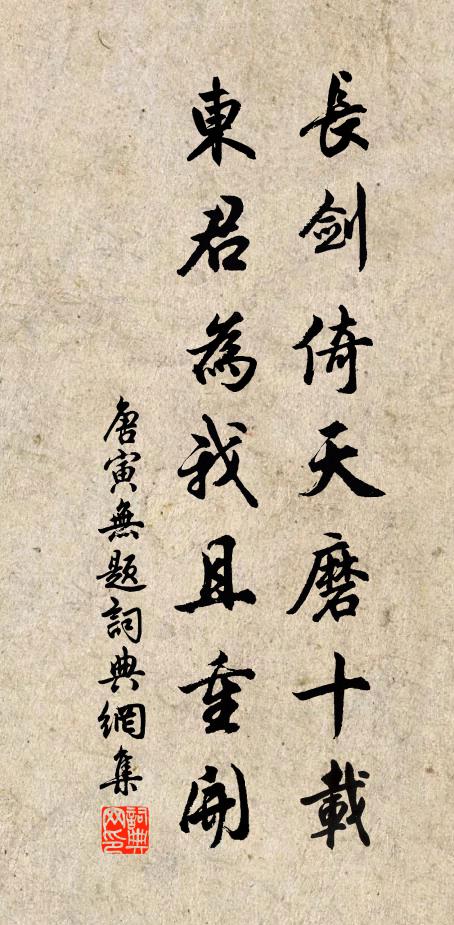 長劍倚天磨十載
東君為我且重開
唐寅無題詞典網集
詞典网印